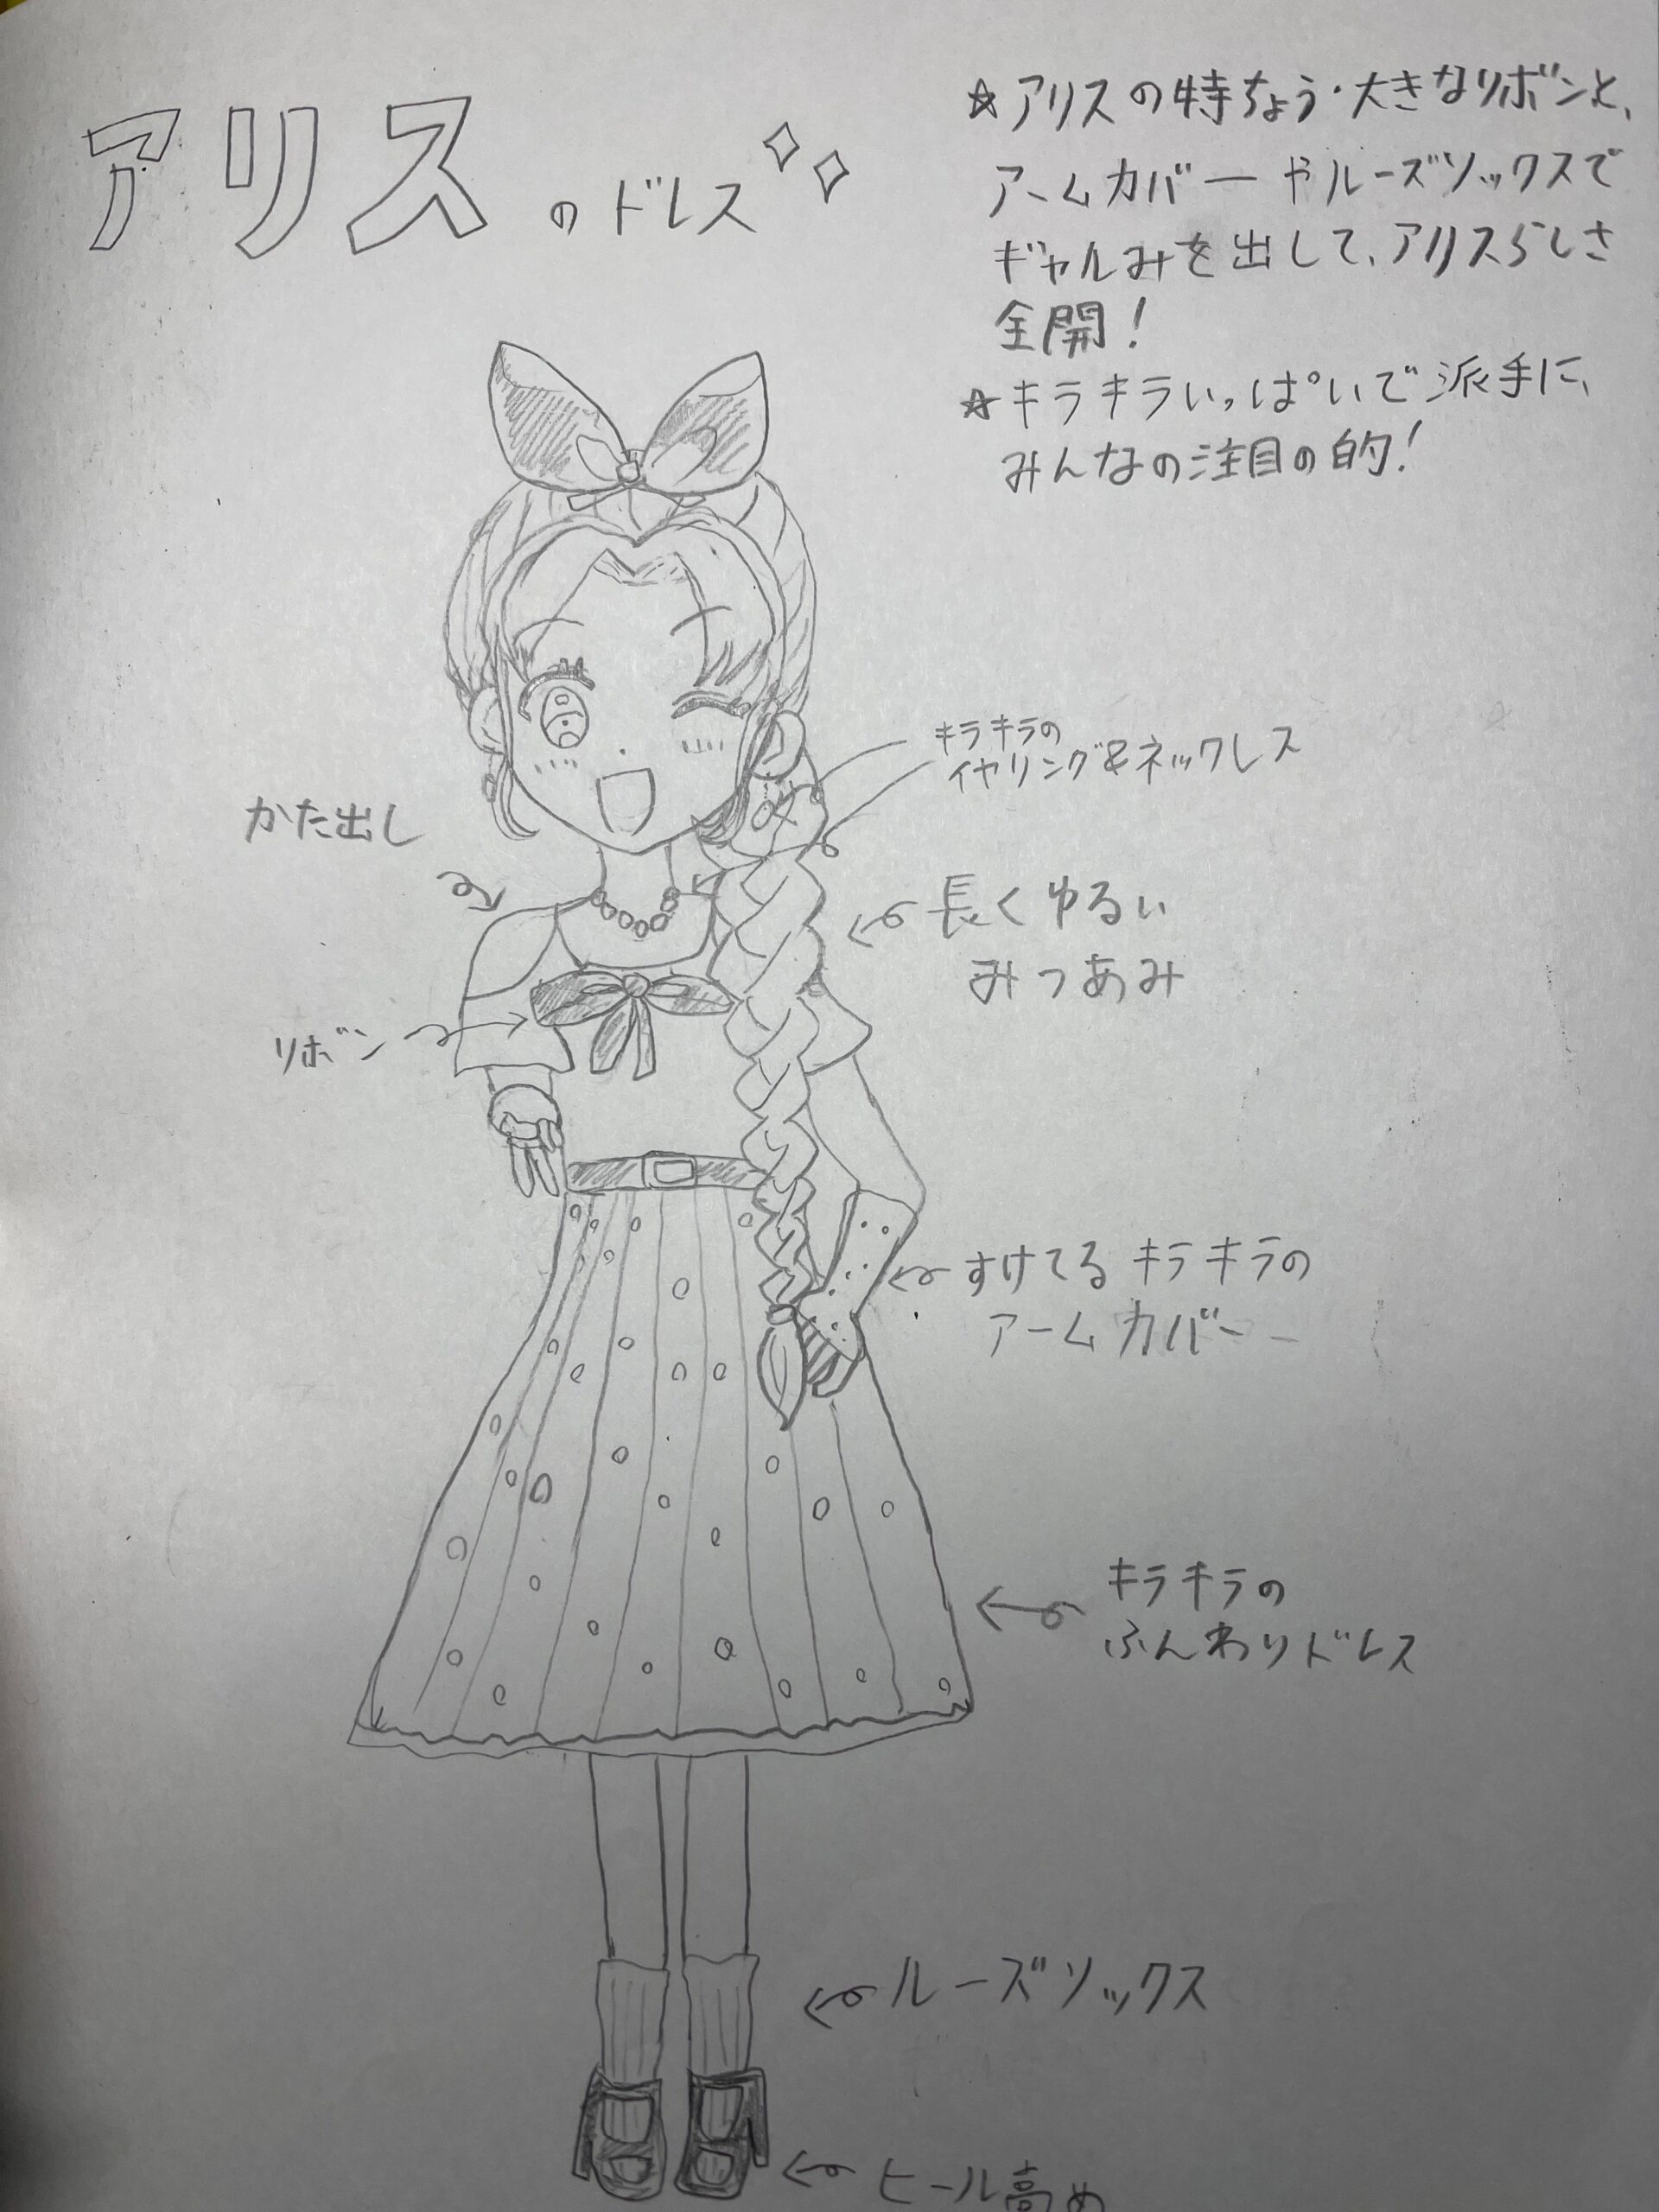 アリスのドレス
☆アリスの特ちょう・大きなリボンと、
アームカバーやルーズソックスで
ギャルみを出して、アリスらしさ
全開！
☆キラキラいっぱいで派手に、
みんなの注目の的！
キラキラの
イヤリング&ネックレス
かた出し
長くゆるい
みつあみ
リボン
すけてるキラキラの
アームカバー
キラキラの
ふんわりドレス
ルーズソックス
ヒール高め